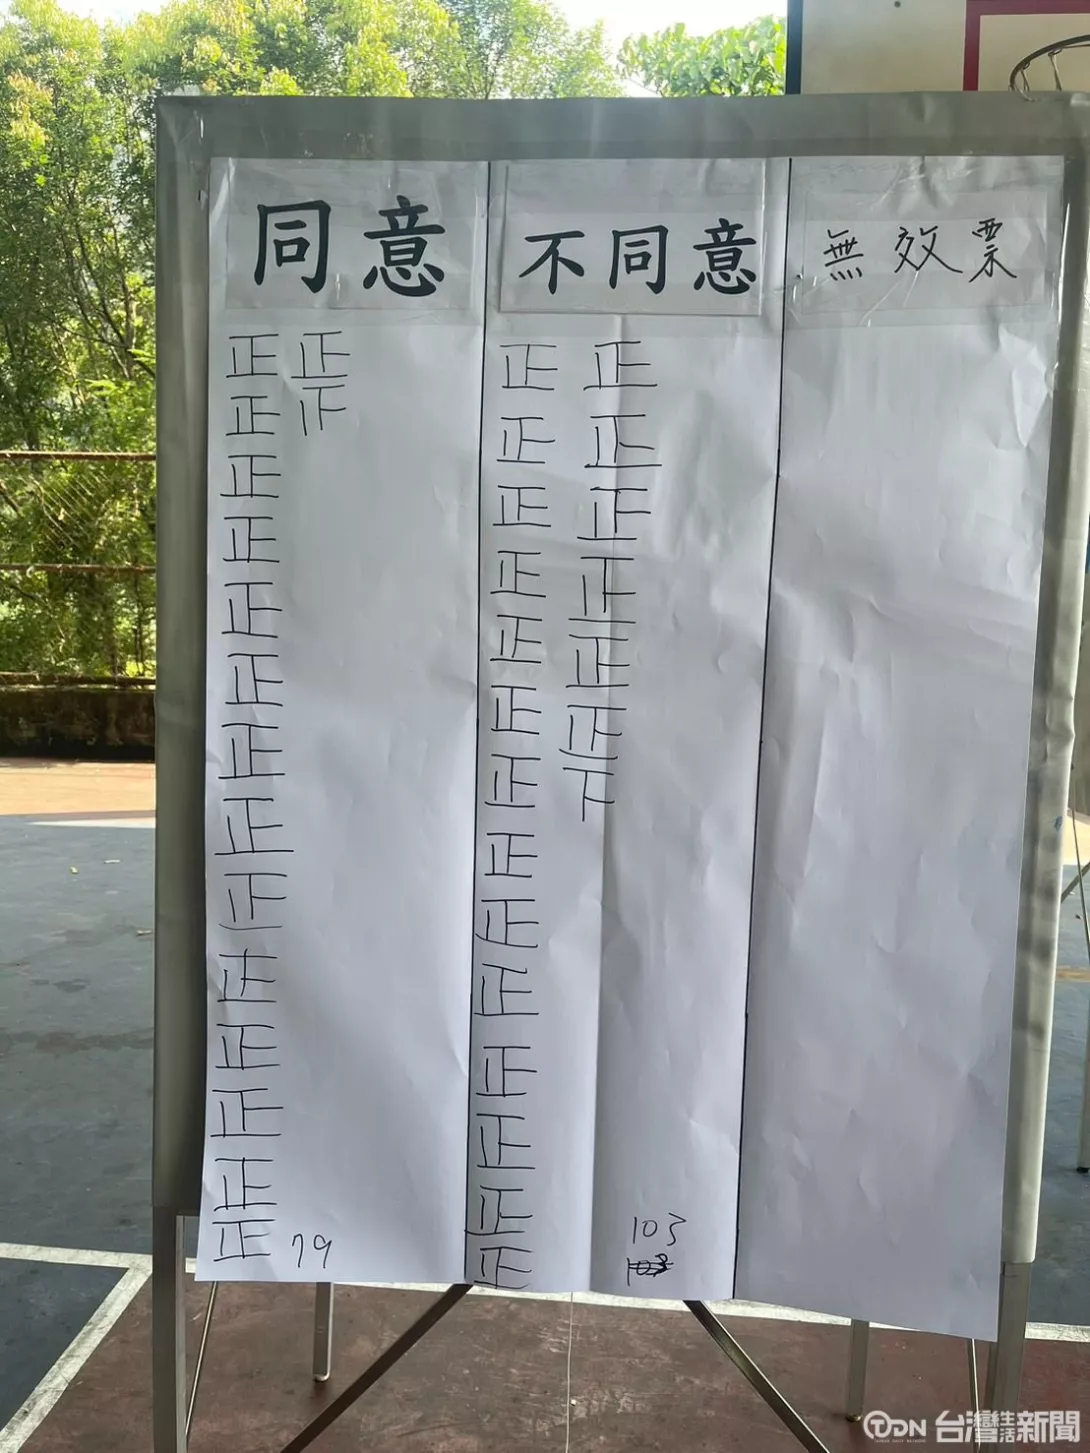 同意
正 正
正
正
正
正
正
正
正
正
正
正
正
正
正
79
不同意
正 正
正 正
正 正
正 正
正 正
正 正
正 下
正
正
正
正
正
正
正
103
無效票
TDN 台灣生活新聞